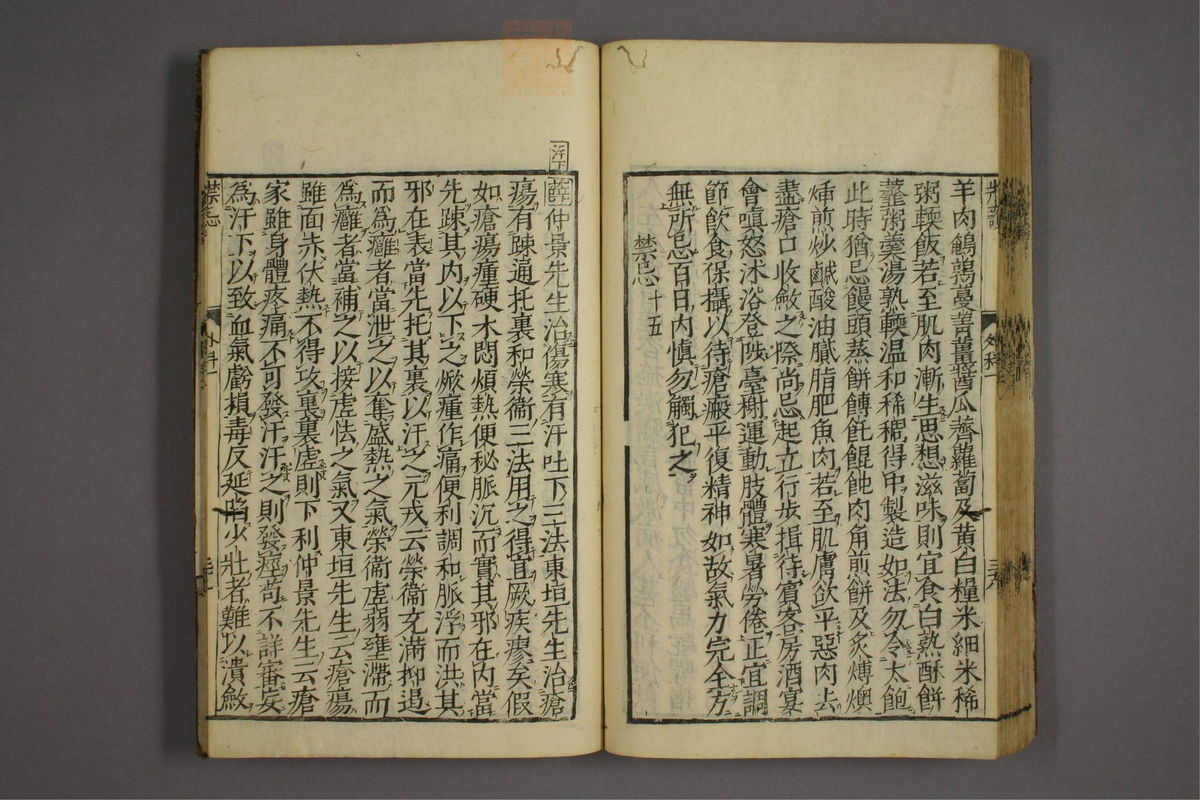 羊肉鵪鶉薑醬薑醬瓜虀蘿蔔及黃白糧米細米稀
粥輭飯若至肌肉漸生思想滋味則宜食白熟酥餅
虀粥羹湯熟輭溫和稀稠得中製造如法勿冷太飽
此時猶忌饅頭蒸餅餺飥餛飩肉角煎餅及炙煿燠
煄煎炒鹹酸油膩脂肥魚肉若至肌膚欲平惡肉去
盡瘡口收斂之際尚忌起立行步揖待賓客房酒宴
會嗔怒沐浴登陟臺榭運動肢體寒暑勞倦正宜調
節飲食保攝以待瘡瘢平復精神如故氣力完全方
無所忌百日內慎勿觸犯之
禁忌十五
汗下
薛仲景先生治傷寒有汗吐下三法東垣先生治瘡
瘍有疎通托裏和榮衞三法用之得宜厥疾瘳矣假
如瘡瘍瘇硬木悶煩熱便秘脈沉而實其邪在內當
先疎其內以下之焮瘇作痛便利調和脈浮而洪其
邪在表當先托其裏以汗之元戎云榮衞充滿抑遏
而為癰者當泄之以奪盛熱之氣榮衞虛弱壅滯而
為癰者當補之以接虛怯之氣又東垣先生云瘡瘍
雖面赤伏熱不得攻裏裏虛則下利仲景先生云瘡
家雖身體疼痛不可發汗汗之則發痙苟不詳審妄
為汗下以致血氣虧損毒反延陷少壯者難以潰斂
禁忌
外科一